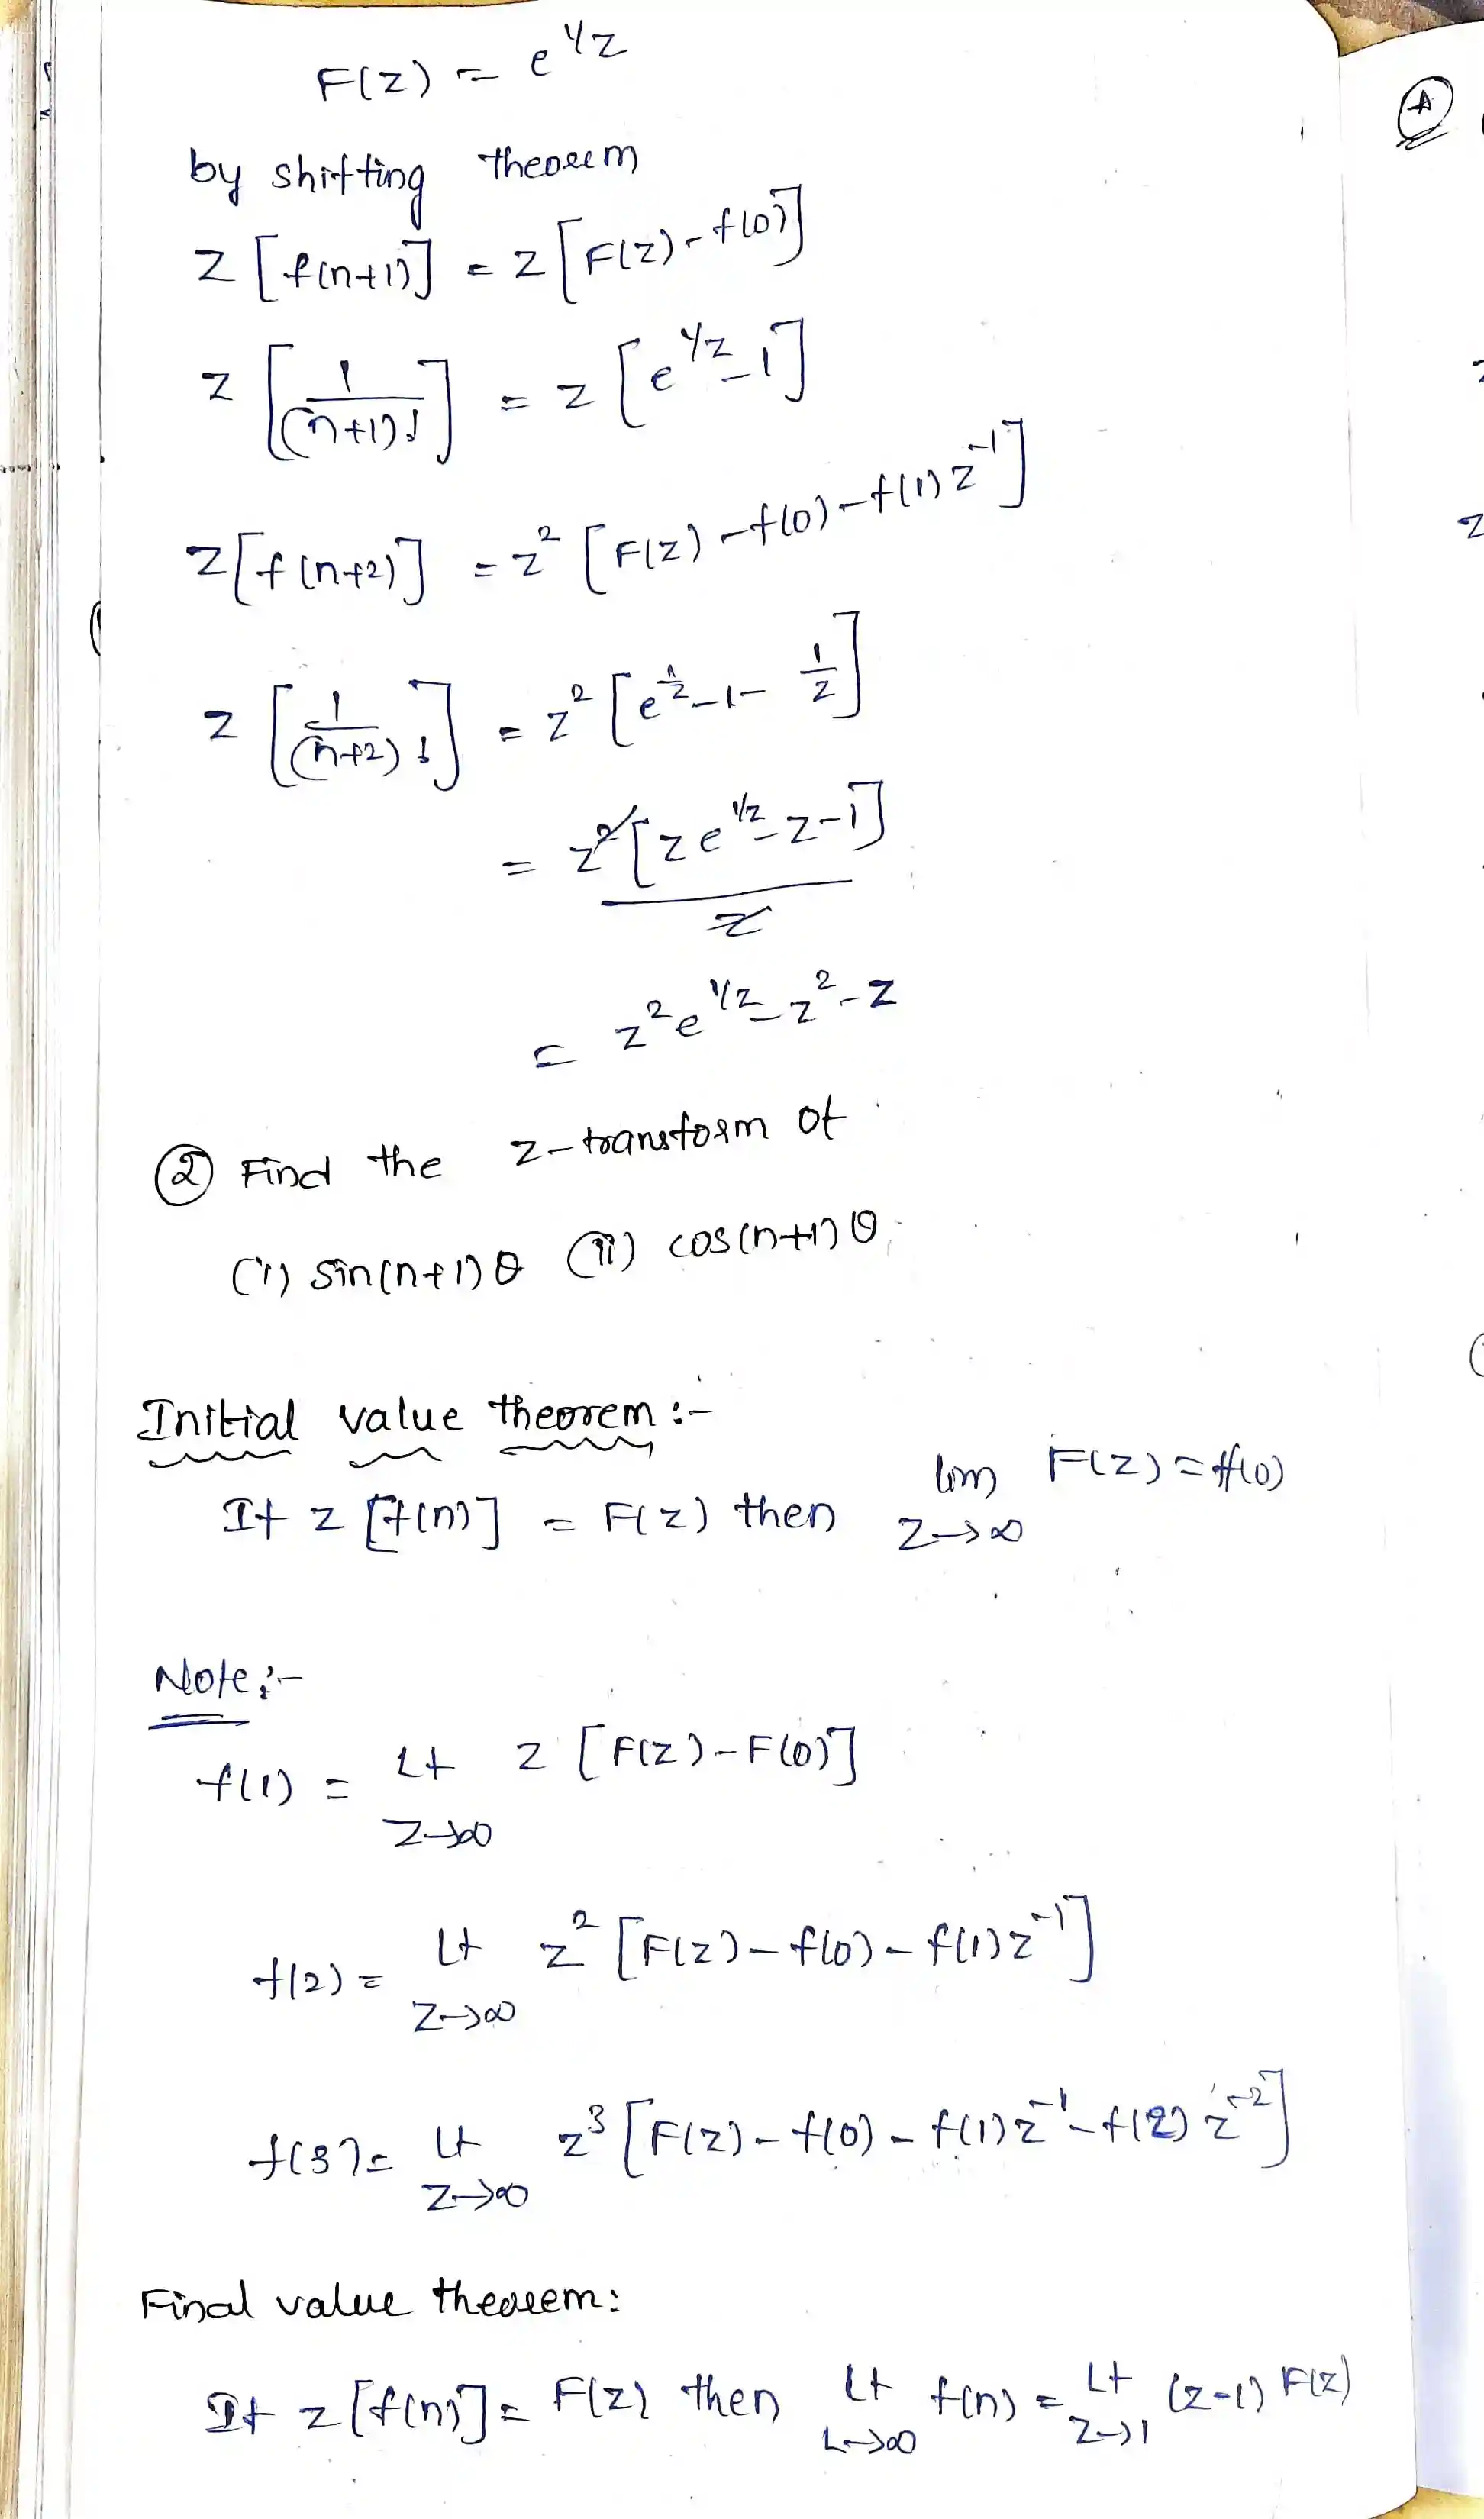 F(z) = e^1/z
by shifting theorem
z [f(n+1)] = z [F(z) - f(0)]
z [1/(n+1)!] = z [e^1/z - 1]
z [f(n+2)] = z² [F(z) - f(0) - f(1) z⁻¹]
z [1/(n+2)!] = z² [e^1/z - 1 - 1/z]
= z² [z e^1/z - z - 1] / z
= z² e^1/z - z² - z
② Find the z-transform of
(i) sin(n+1)θ (ii) cos(n+1)θ
Initial value theorem :-
If z [f(n)] = F(z) then lim z→∞ F(z) = f(0)
Note :-
f(1) = Lt z→∞ z [F(z) - F(0)]
f(2) = Lt z→∞ z² [F(z) - f(0) - f(1) z⁻¹]
f(3) = Lt z→∞ z³ [F(z) - f(0) - f(1) z⁻¹ - f(2) z⁻²]
Final value theorem :
If z [f(n)] = F(z) then Lt →∞ f(n) = Lt z→1 (z-1) F(z)